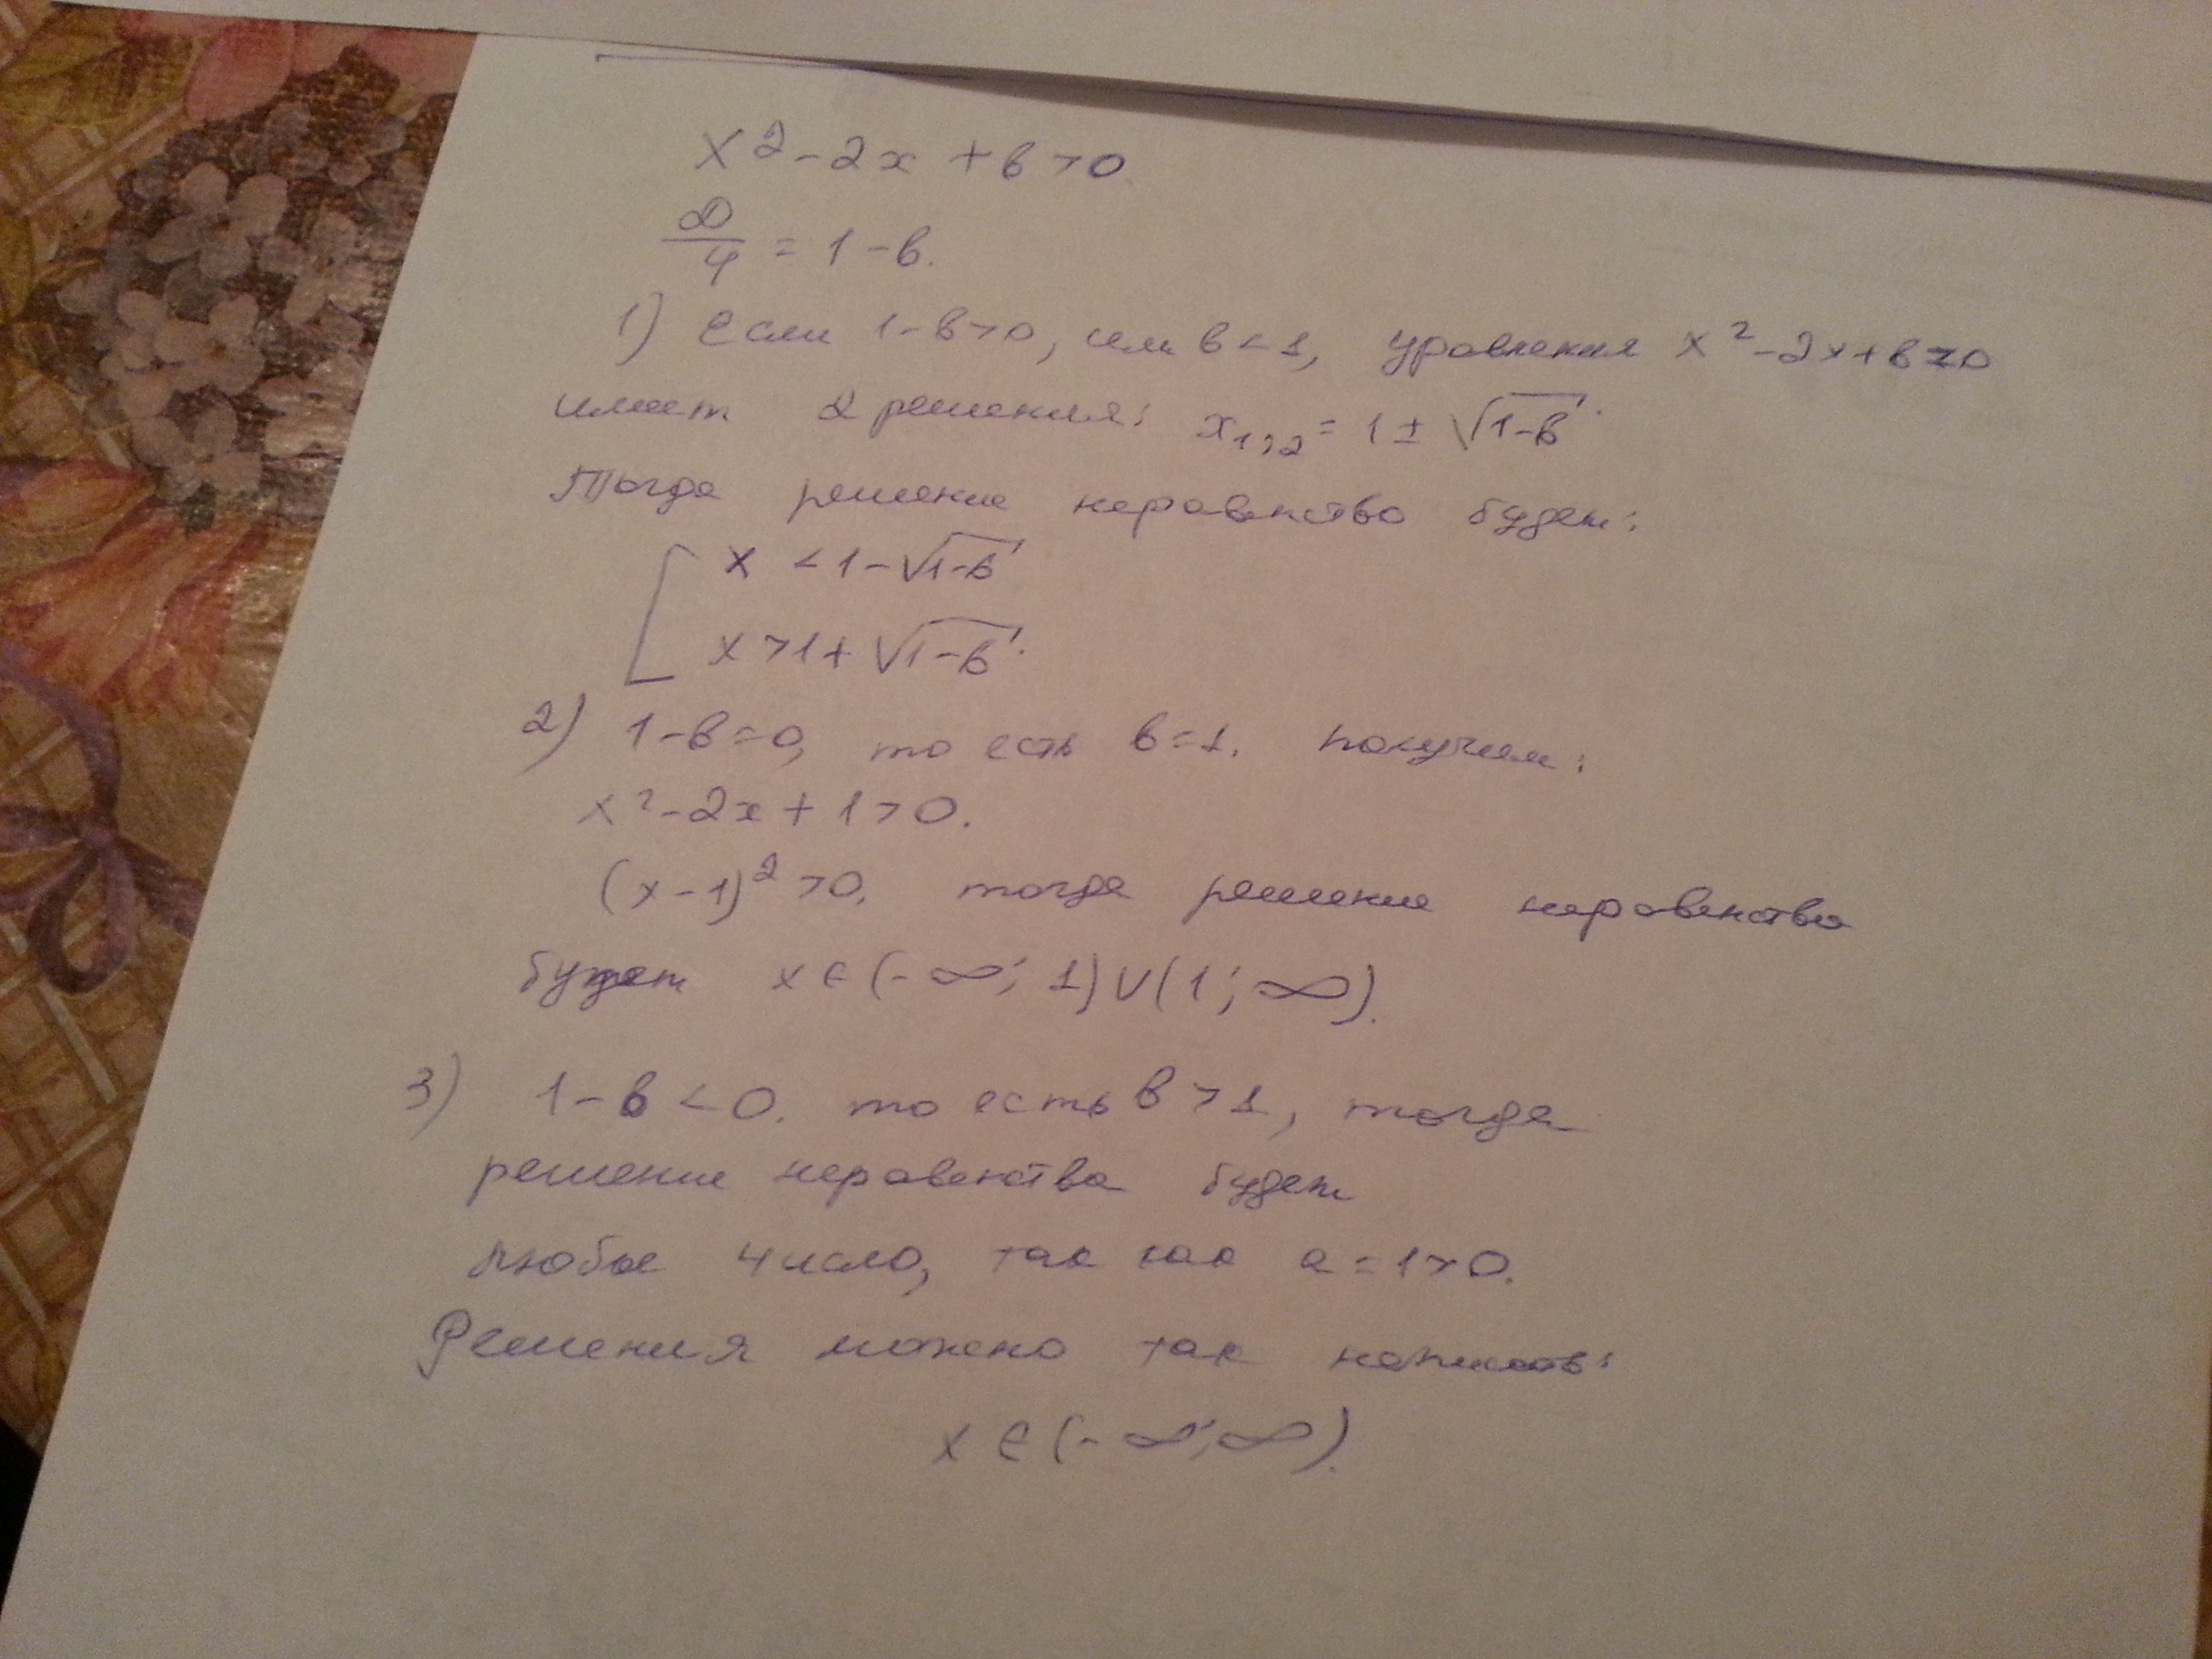 x² - 2x + в > 0
D/4 = 1 - в.
1) Если 1-в>0, или в < 1, уравнения x² - 2x + в = 0
имеет 2 решения: x₁,₂ = 1 ± √(1-в).
Тогда решение неравенство будет:
[ x < 1 - √(1-в)
x > 1 + √(1-в).
2) 1-в=0, то есть в=1. получим:
x² - 2x + 1 > 0.
(x-1)² > 0. тогда решение неравенства
будет x ∈ (-∞; 1) ∪ (1; ∞).
3) 1-в < 0. то есть в > 1, тогда
решение неравенства будет
любое число, так как а = 1 > 0.
Решения можно так написать:
x ∈ (-∞; ∞).